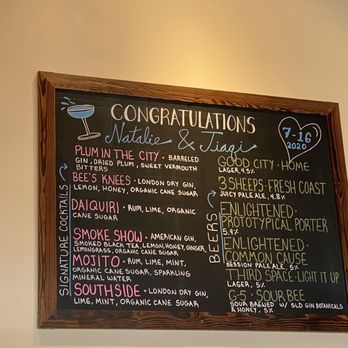 CONGRATULATIONS
Natalie & Jiaqi
7-16
2020
SIGNATURE COCKTAILS
PLUM IN THE CITY • BARRELED
GIN, DRIED PLUM, SWEET VERMOUTH
BITTERS
BEE'S KNEES • LONDON DRY GIN,
LEMON, HONEY, ORGANIC CANE SUGAR
DAIQUIRI • RUM, LIME, ORGANIC
CANE SUGAR
SMOKE SHOW • AMERICAN GIN,
SMOKED BLACK TEA, LEMON, HONEY, GINGER,
LEMONGRASS, ORGANIC CANE SUGAR
MOJITO • RUM, LIME, MINT,
ORGANIC CANE SUGAR, SPARKLING
MINERAL WATER
SOUTHSIDE • LONDON DRY GIN,
LIME, MINT, ORGANIC CANE SUGAR
BEERS
GOOD CITY • HOME
LAGER, 4.5%
3 SHEEPS • FRESH COAST
JUICY PALE ALE, 4.8%
ENLIGHTENED •
PROTOTYPICAL PORTER
5.4%
ENLIGHTENED •
COMMON CAUSE
SESSION PALE ALE, 5%
THIRD SPACE • LIGHT IT UP
LAGER, 5%
G-5 • SOUR BEE
SOUR BREWED W/ SLD GIN BOTANICALS
& HONEY, 5%